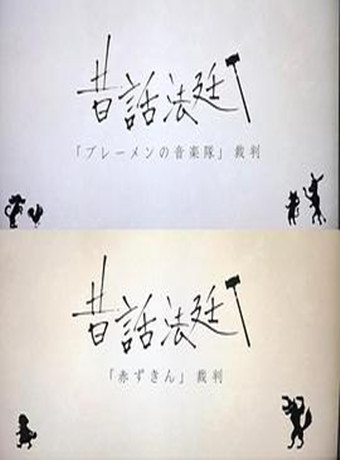 昔話法廷
「ブレーメンの音楽隊」裁判
昔話法廷
「赤ずきん」裁判